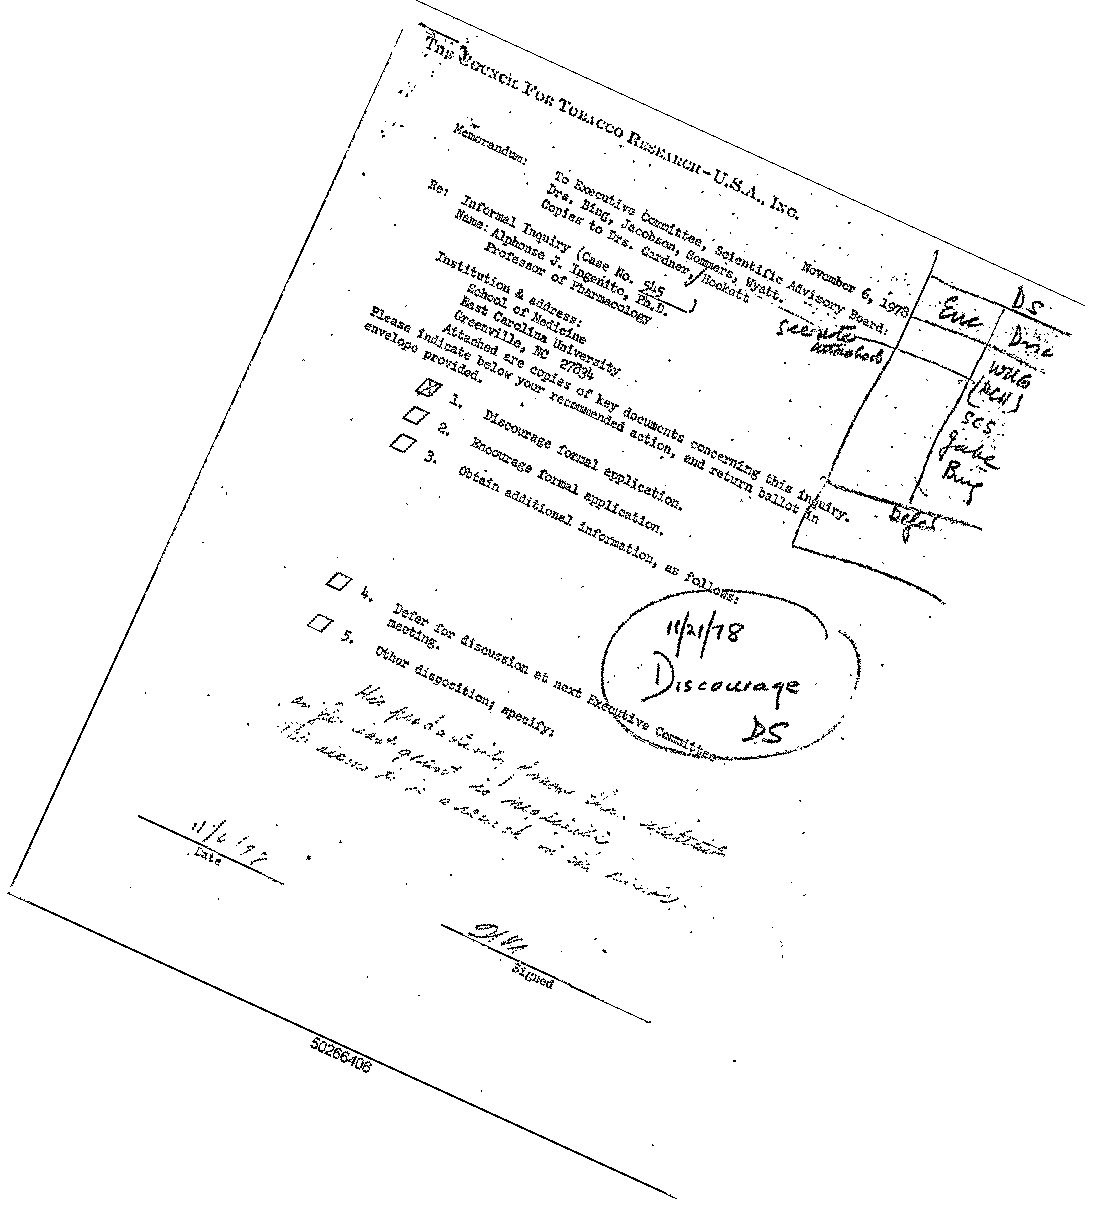 THE COUNCIL FOR TOBACCO RESEARCH-U.S.A., INC.
November 6, 1978
Memorandum:
To Executive Committee, Scientific Advisory Board:
Drs. Bing, Jacobson, Sommers, Wyatt.
Copies to Drs. Gardner, Hockett
see note
attached
Re: Informal Inquiry (Case No. 545)
Name: Alphonse J. Ingenito, Ph.D.
Professor of Pharmacology
Institution & address:
School of Medicine
East Carolina University
Greenville, NC 27834
DS
Enc Disc
WUG
(RCH)
SCS
Jake
Bing
Defer
Attached are copies of key documents concerning this inquiry.
Please indicate below your recommended action, and return ballot in
envelope provided.
1. Discourage formal application.
2. Encourage formal application.
3. Obtain additional information, as follows:
11/21/78
Discourage
DS
4. Defer for discussion at next Executive Committee
meeting.
5. Other disposition; specify:
His productivity from the
grant is
Date
Signed
50266406